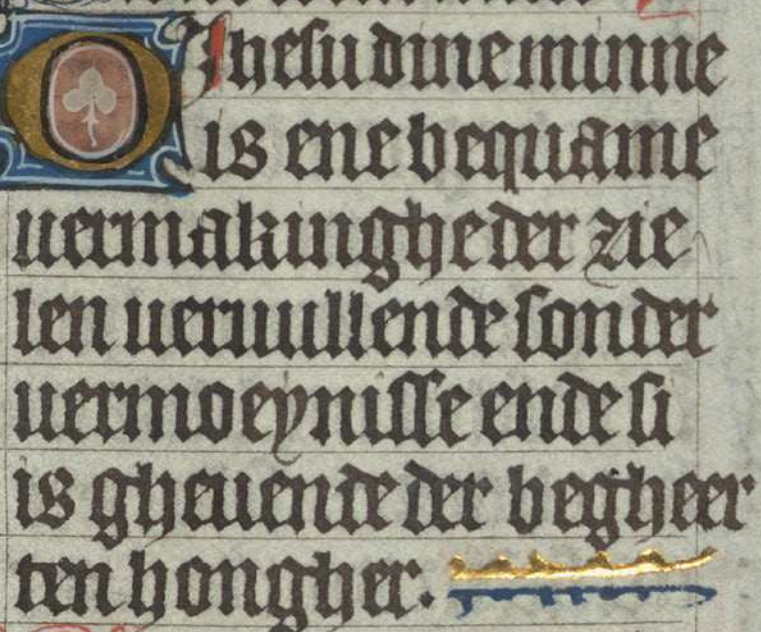 O Jhesu dine minne
is ene bequame
uermakinghe der zie
len ueruullende sonder
uermoeynisse ende si
is gheuende der begheer
ten hongher.